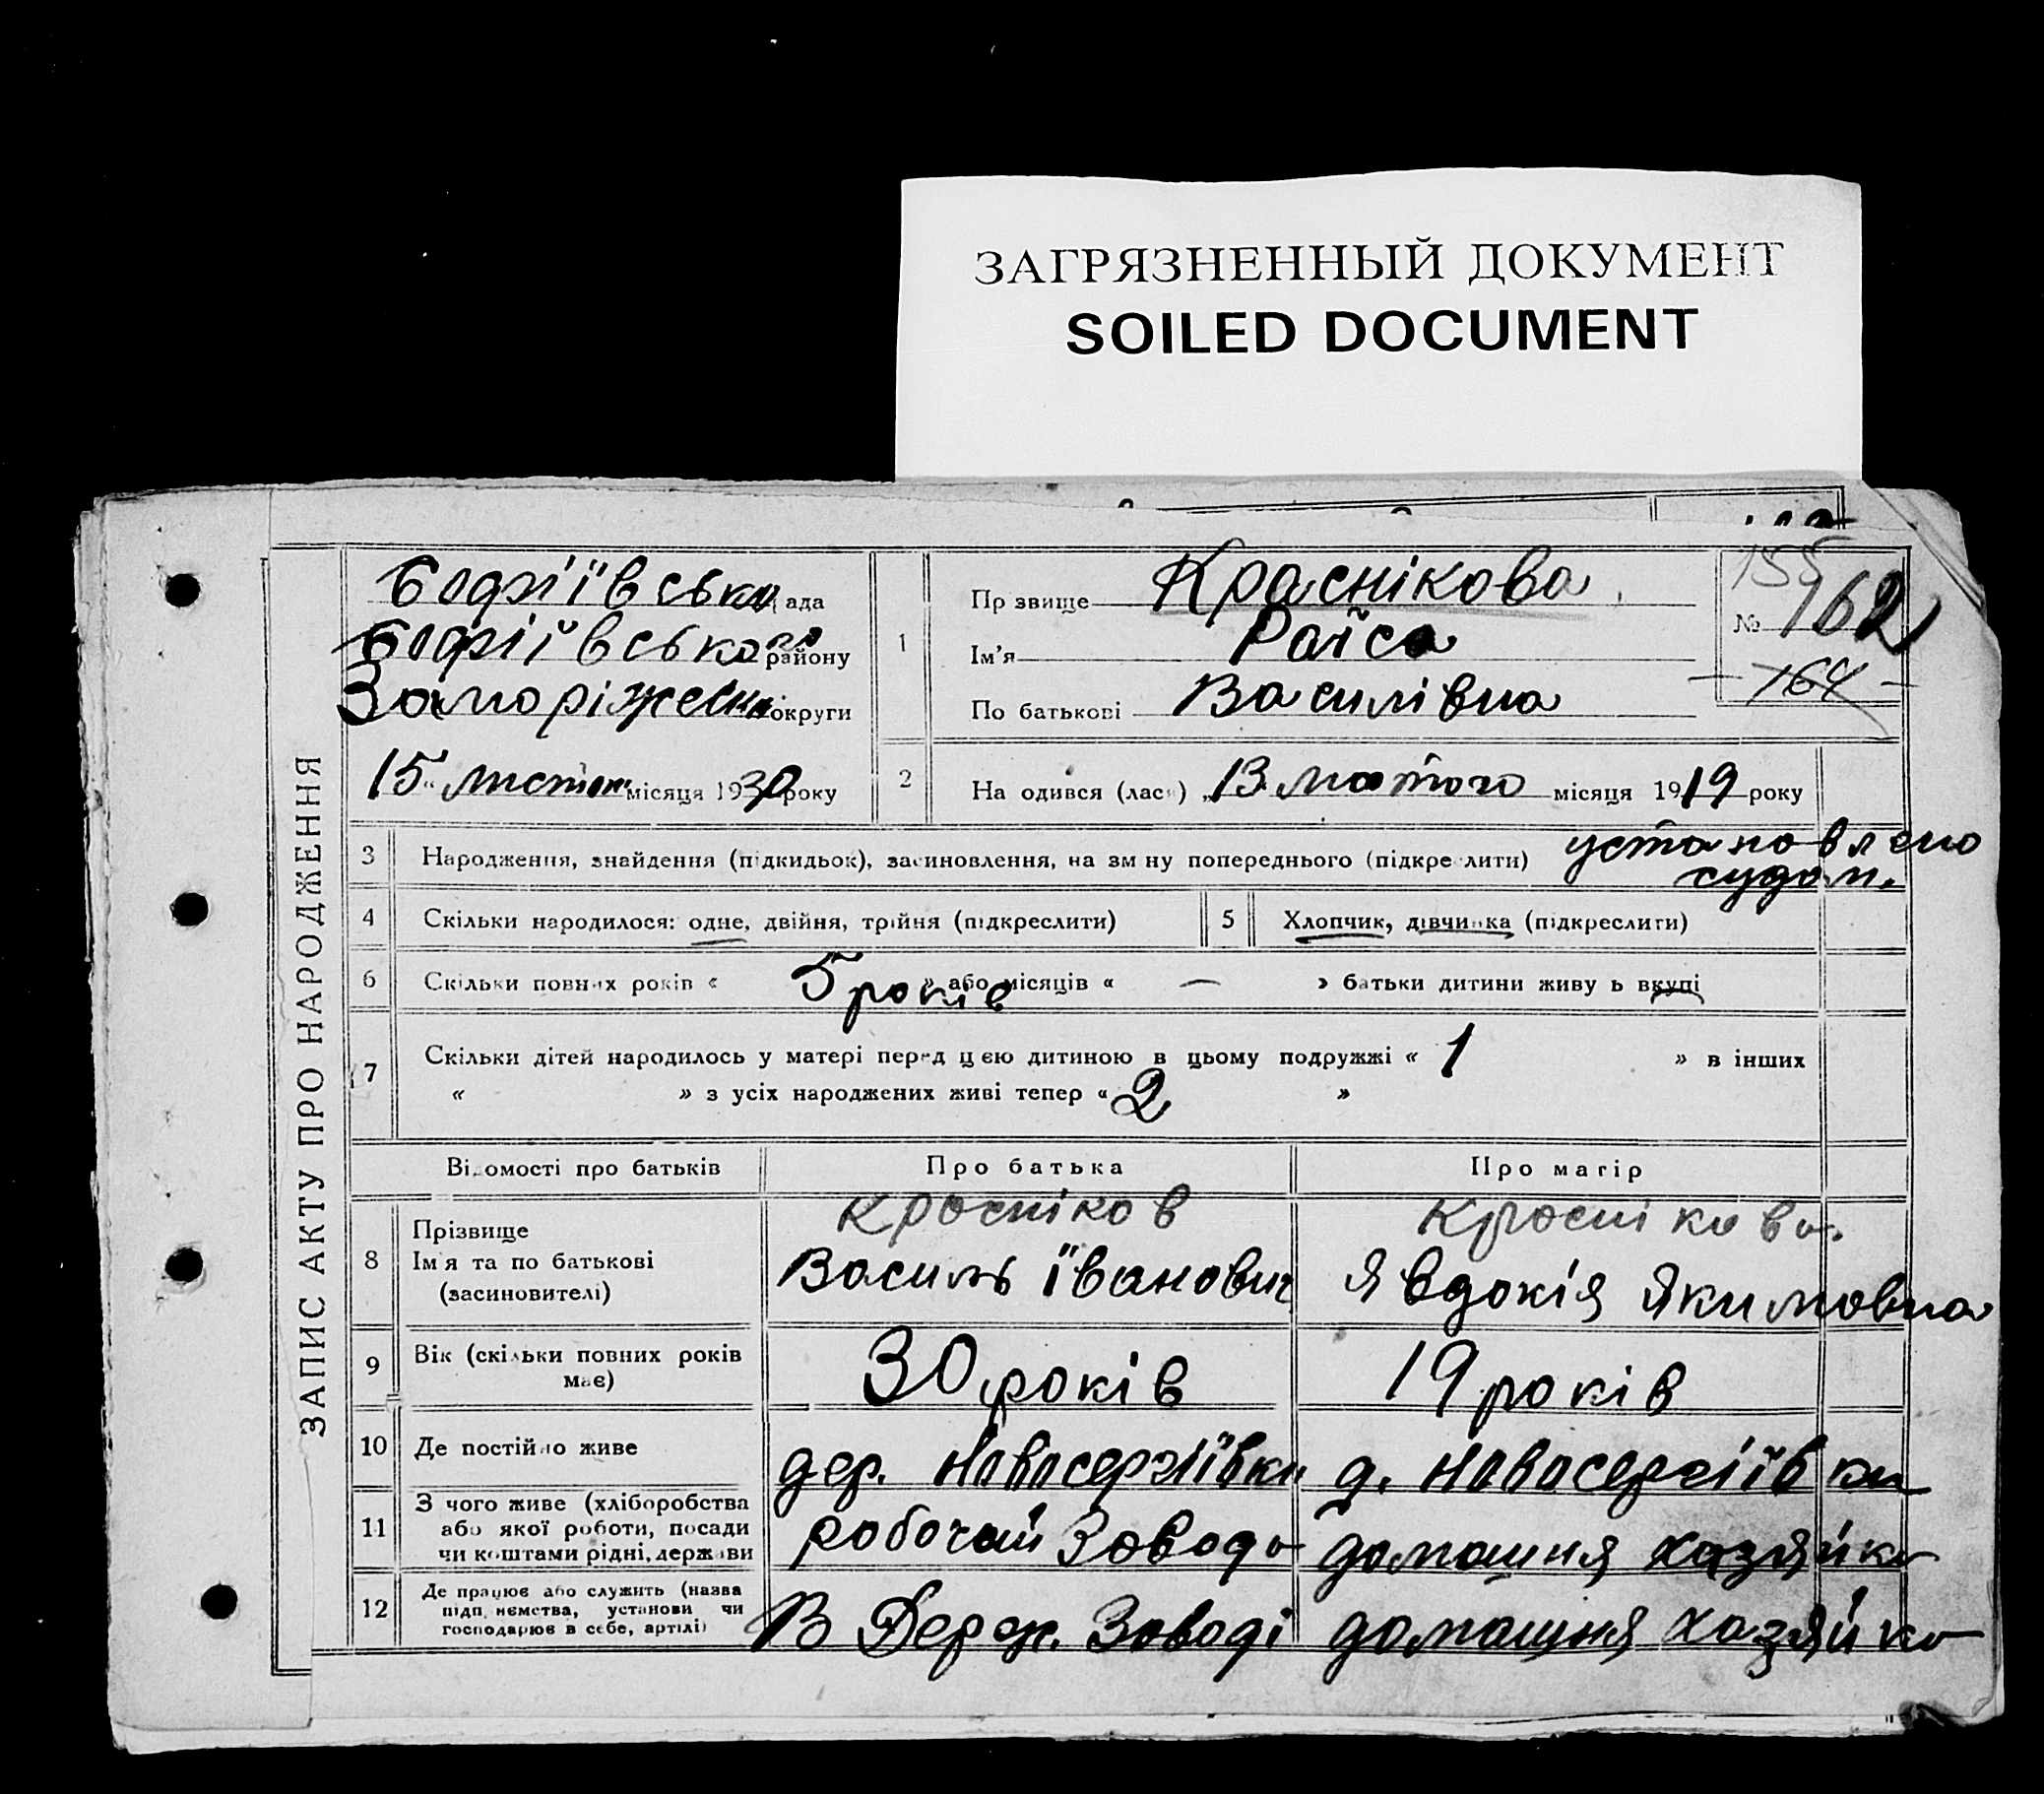 ЗАГРЯЗНЕННЫЙ ДОКУМЕНТ
SOILED DOCUMENT
ЗАПИС АКТУ ПРО НАРОДЖЕННЯ
Софіївська рада
Софіївського району
Запоріжської округи
15 листоп місяця 1930 року
1
Пр звище Краснікова
Ім'я Раїса
По батькові Василівна
155
№ 162
164
2
На одився (лася) „13 лютого місяця 1919 року
3 Народження, знайдення (підкидьок), засиновлення, на зм ну попереднього (підкреслити) установлено
судом.
4 Скільки народилося: одне, двійня, трійня (підкреслити) 5 Хлопчик, дівчинка (підкреслити)
6 Скільки повних років « 5 років » або місяців « — » батьки дитини живу ь вкупі
7 Скільки дітей народилось у матері перед цією дитиною в цьому подружжі « 1 » в інших
« » з усіх народжених живі тепер « 2 »
Відомості про батьків Про батька Про матір
8 Прізвище Красніков Краснікова.
Ім'я та по батькові Василь Іванович Явдокія Якимовна
(засиновителі)
9 Вік (скільки повних років має) 30 років 19 років
10 Де постійно живе дер. Новосергіївка д. Новосергіївка
11 З чого живе (хліборобства робочий Завода домашня хазяйка
або якої роботи, посади
чи коштами рідні, держави
12 Де працює або служить (назва В Держ. Заводі домашня хазяйка
підп нємства, установи чи
господарює в себе, артілі)